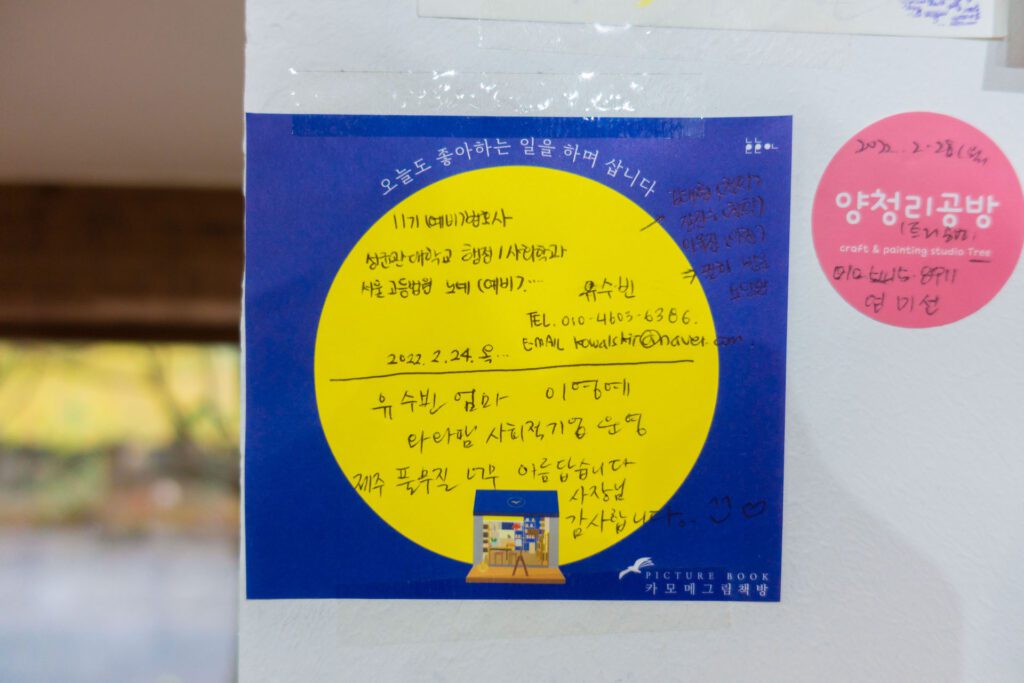 오늘도 좋아하는 일을 하며 삽니다
11기 (예비)법조사
성균관대학교 행정/사회학과
서울고등법원 노예 (예비)....
유수빈
TEL. 010-4605-6386.
E-MAIL kowalskir@naver.com.
2022. 2. 24. 목...
유수빈 엄마 이영예
사회적기업 운영
제주 풀무질 너무 아름답습니다
사장님
감사합니다.
PICTURE BOOK
카모메그림책방
2022. 2. 28
양청리공방
craft & painting studio Tree
염미선